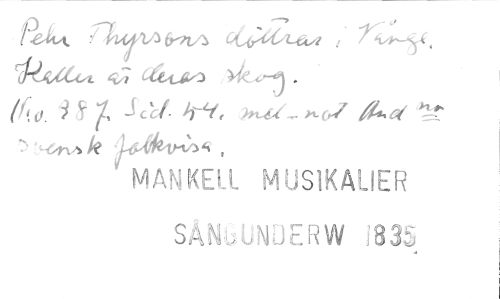 Pehr Thyrsons döttrar i Vänge.
Kaller är deras skog.
No. 387, Sid. 44. mel-not And nr
svensk folkvisa.
MANKELL MUSIKALIER
SÅNGUNDERW 1835